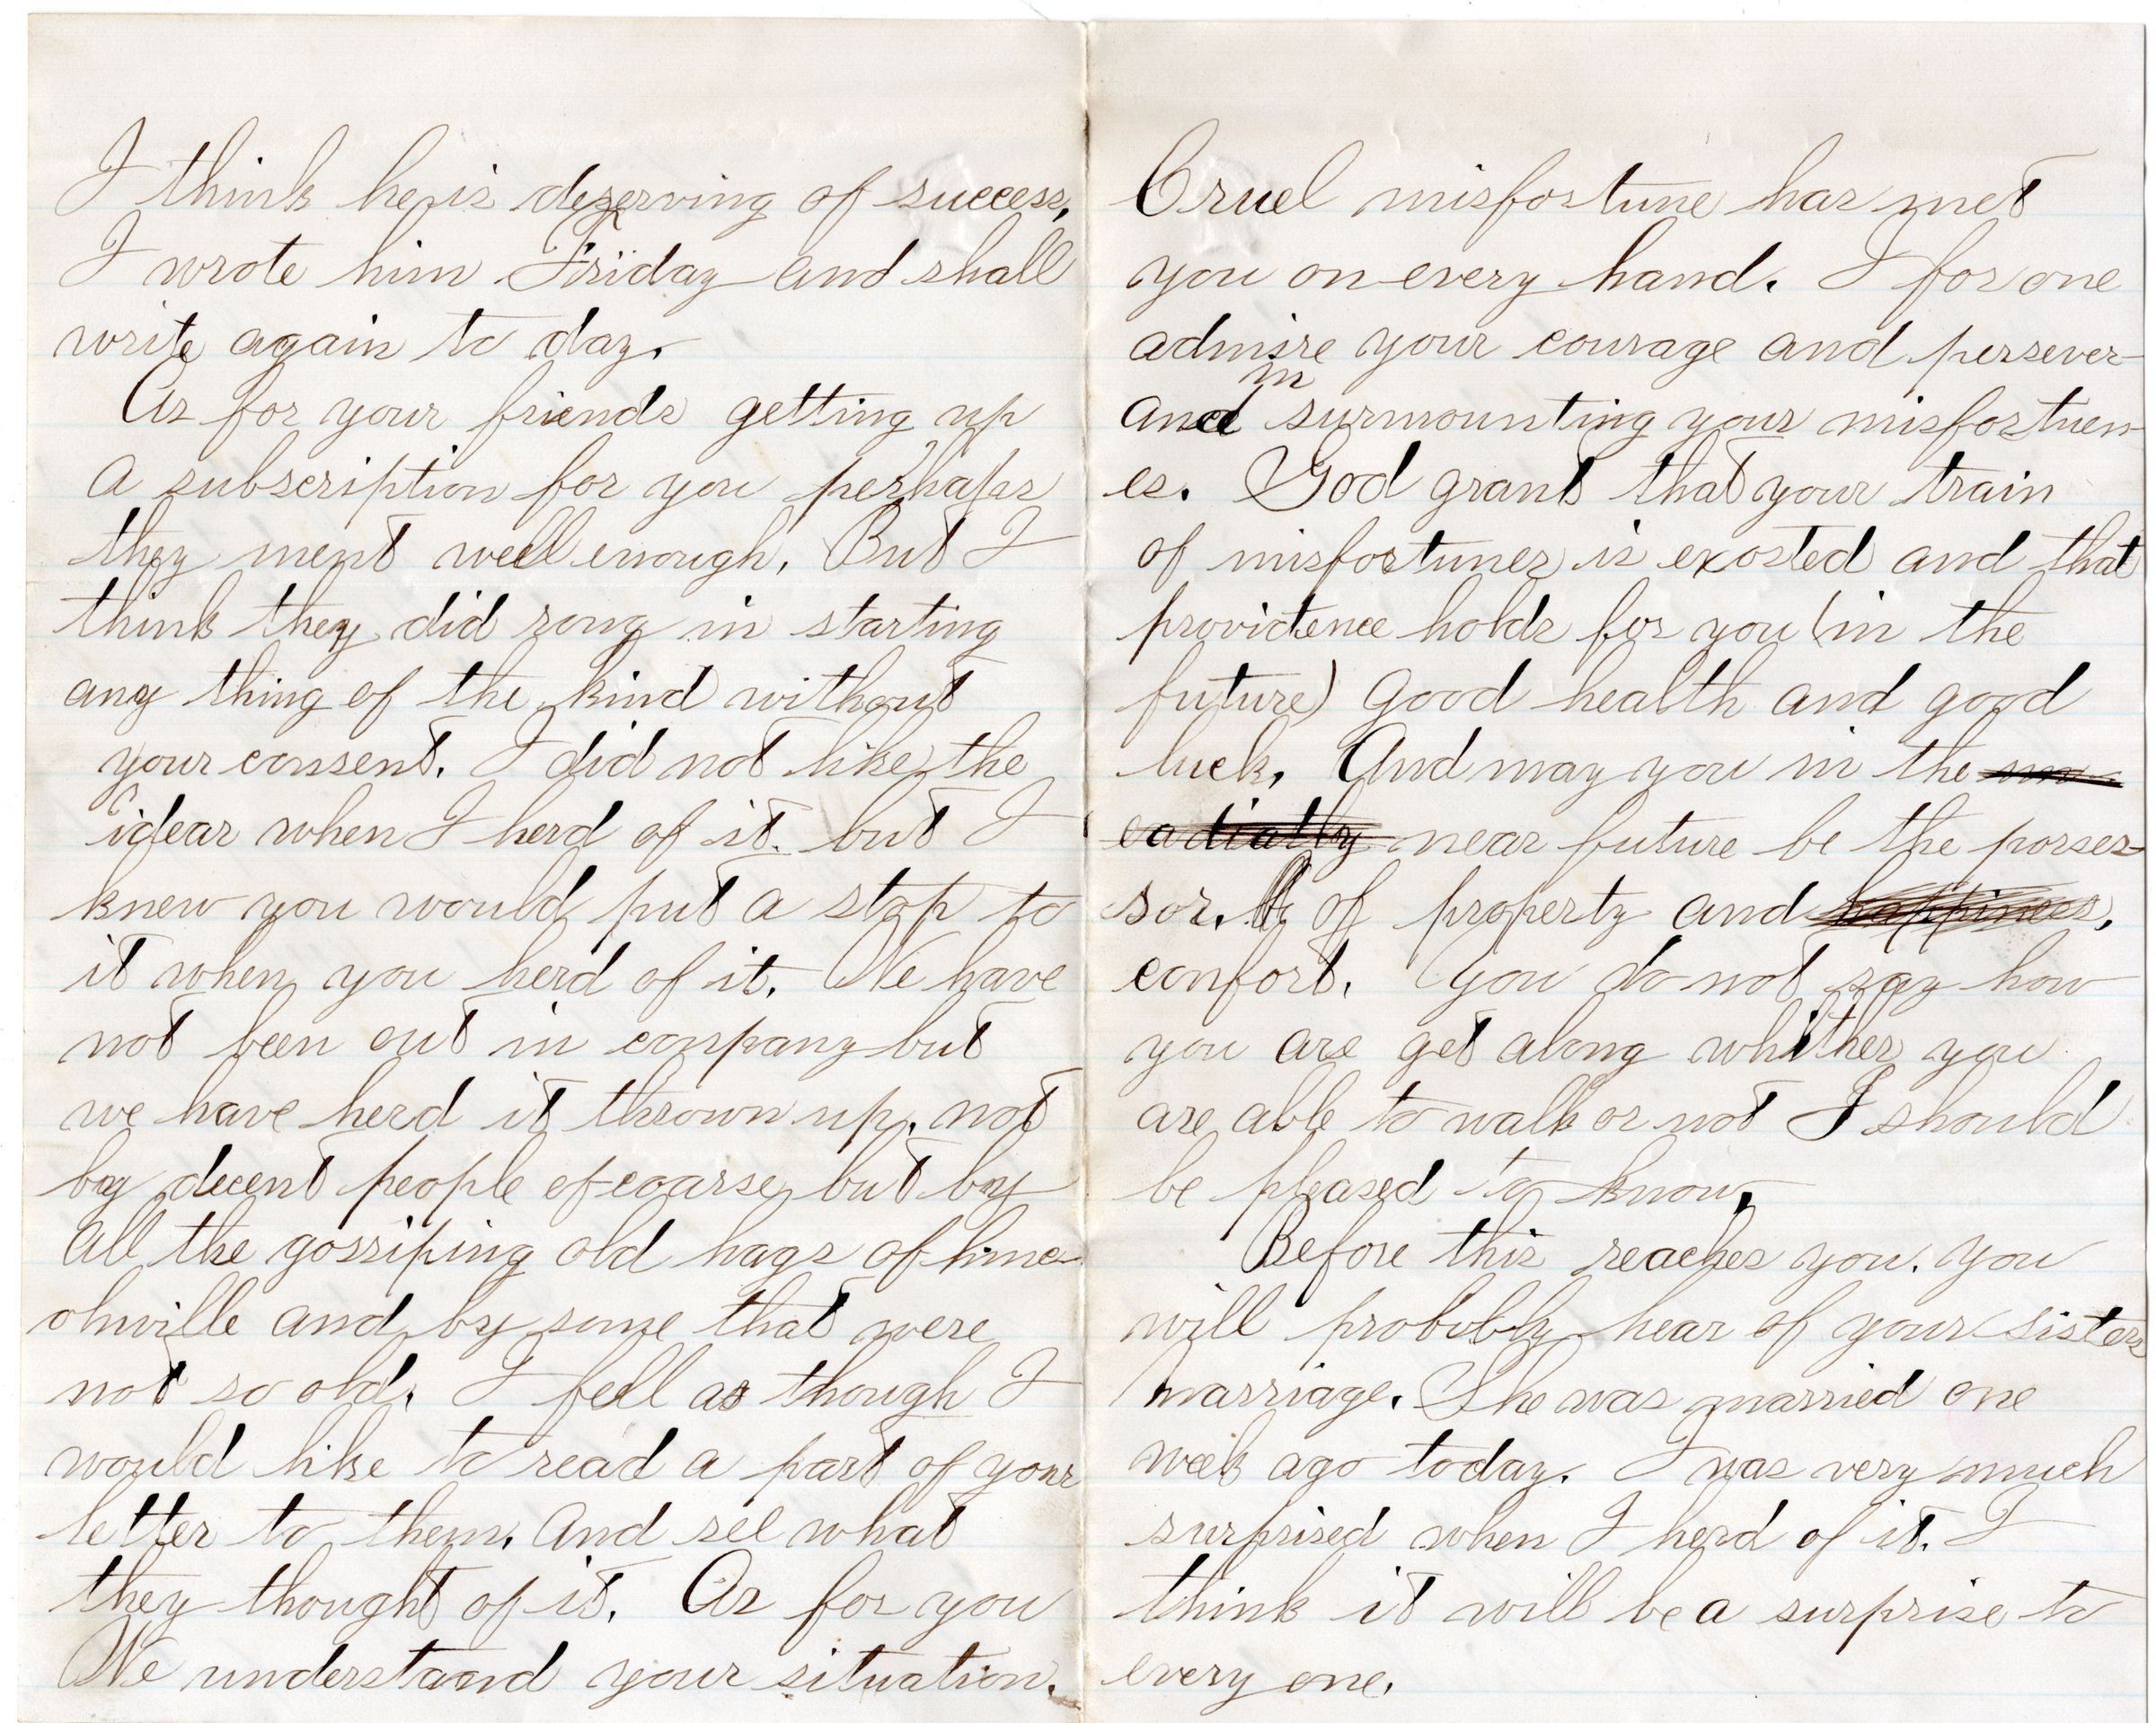 I think he is dezerving of success,
I wrote him Friday and shall
write again to day.
As for your friends getting up
a subscription for you perhaps
they ment well enough. But I
think they did rong in starting
any thing of the kind without
your consent. I did not like the
idear when I herd of it. but I
knew you would put a stop to
it when you herd of it. We have
not been out in conpany but
we have herd it thrown up. not
by decent people of coarse but by
all the gossiping old hags of
and by some that were
not so old. I fell as though I
would like to read a part of your
letter to them. And see what
they thought of it. As for you
We understand your situation.
Cruel misfortune has met
you on every hand. I for one
admire your courage and persever-
ance in surmounting your misfortuen-
es. God grant that your train
of misfortunes is exosted and that
providence holds for you (in the
future) good health and good
luck, And may you in the
near future be the porses-
sor. of property and happiness,
confort. You do not say how
you are get along whither you
are able to walk or not I should
be pleased to know,
Before this reaches you. you
will probobly hear of your sisters
marriage. She was married one
week ago today. I was very much
surprised when I herd of it. I
think it will be a surprise to
every one.